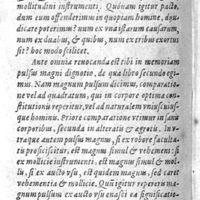 mollitudini instrumenti. Quónam igitur pacto,
dum eum offenderimus in quopiam homine, di-
dicare poterimus? num ex vna istarum causarum,
num ex duabus, & quibus, num ex tribus exortus
sit? hoc modo scilicet.
Ante omnia reuocanda est tibi in memoriam
pulsus magni dignotio, de qua libro secundo egi-
mus. Nam magnum pulsum dicimus, comparatio-
ne velad quadratum, qui in corpore optimæ con-
stitutionis reperitur, vel ad naturalem vniuscuius-
que hominis. Priore comparatione vtimur in sanis
corporibus, secunda in alteratis & ægrotis. In v-
traque autem pulsus magnus, si ex robore faculta-
tis proficiscitur, est magnus simul & vehemens: si
ex mollicie instrumenti, est magnus simul & mol-
lis, si ex aucto vsu, est quidem magnus, sed caret
vehementia & mollicie. Qui igitur repererit ma-
gnum pulsum ex aucto vsu enasci ea significatio-